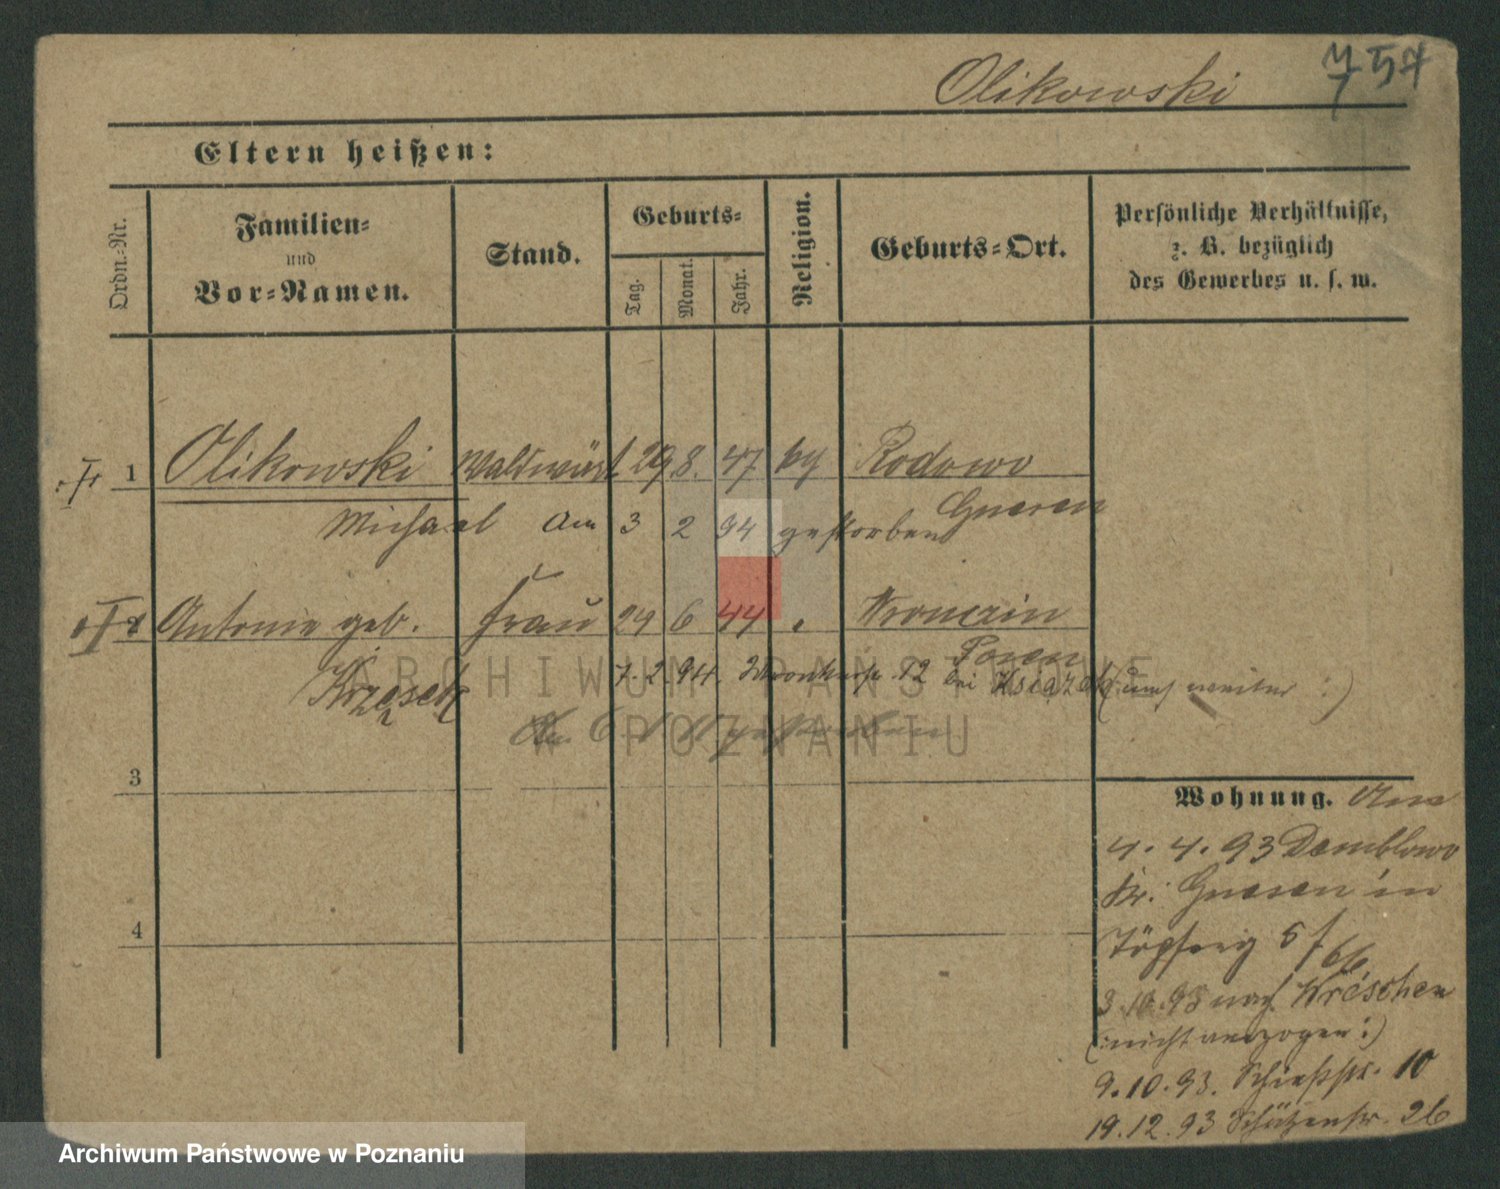 Olikowski
754
Eltern heißen:
Ordn.-Nr.
Familien-
und
Vor-Namen.
Stand.
Geburts-
Tag.
Monat.
Jahr.
Religion.
Geburts-Ort.
Persönliche Verhältnisse,
z. B. bezüglich
des Gewerbes u. s. w.
1 Olikowski Waldwärt 29 8. 47 Rodowo
Michael am 3 2 94 gestorben Gnesen
2 Antonie geb. Frau 24 6 44 Wronczin
Posen
Krzesek 7. 2. 94. 12 bei Książek
gestorben
3
Wohnung. Am
4. 4. 93 Demblowo
Kr. Gnesen in
4
Töpferg 5/66
3.10.93 nach Wreschen
(:nicht anzogen:)
9.10.93. Schießstr. 10
19.12.93 Schützenstr. 26
ARCHIWUM PAŃSTWOWE
W POZNANIU
Archiwum Państwowe w Poznaniu